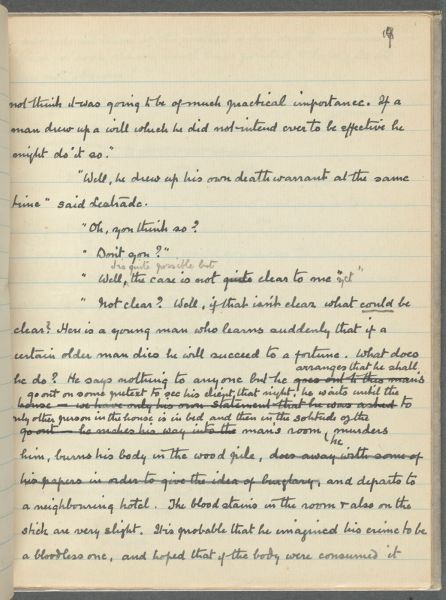 not think it was going to be of much practical importance. If a
man drew up a will which he did not intend ever to be effective he
might do it so."
"Well, he drew up his own death warrant at the same
time" said Lestrade.
"Oh, you think so?
"Don't you?"
It is quite possible but
"Well, the case is not quite clear to me yet"
"Not clear? Well, if that isn't clear what could be
clear? Here is a young man who learns suddenly that if a
certain older man dies he will succeed to a fortune. What does
arranges that he shall
he do? He says nothing to anyone but he goes out to this man's
go out on some pretext to see his client that night, he waits until the
house – we have only his own statement that he was asked to
only other person in the house is in bed and then in the solitude of the
go out – he makes his way into the man's room, murders
he
him, burns his body in the wood pile, does away with some of
his papers in order to give the idea of burglary, and departs to
a neighbouring hotel. The blood stains in the room & also on the
stick are very slight. It is probable that he imagined his crime to be
a bloodless one, and hoped that if the body were consumed it